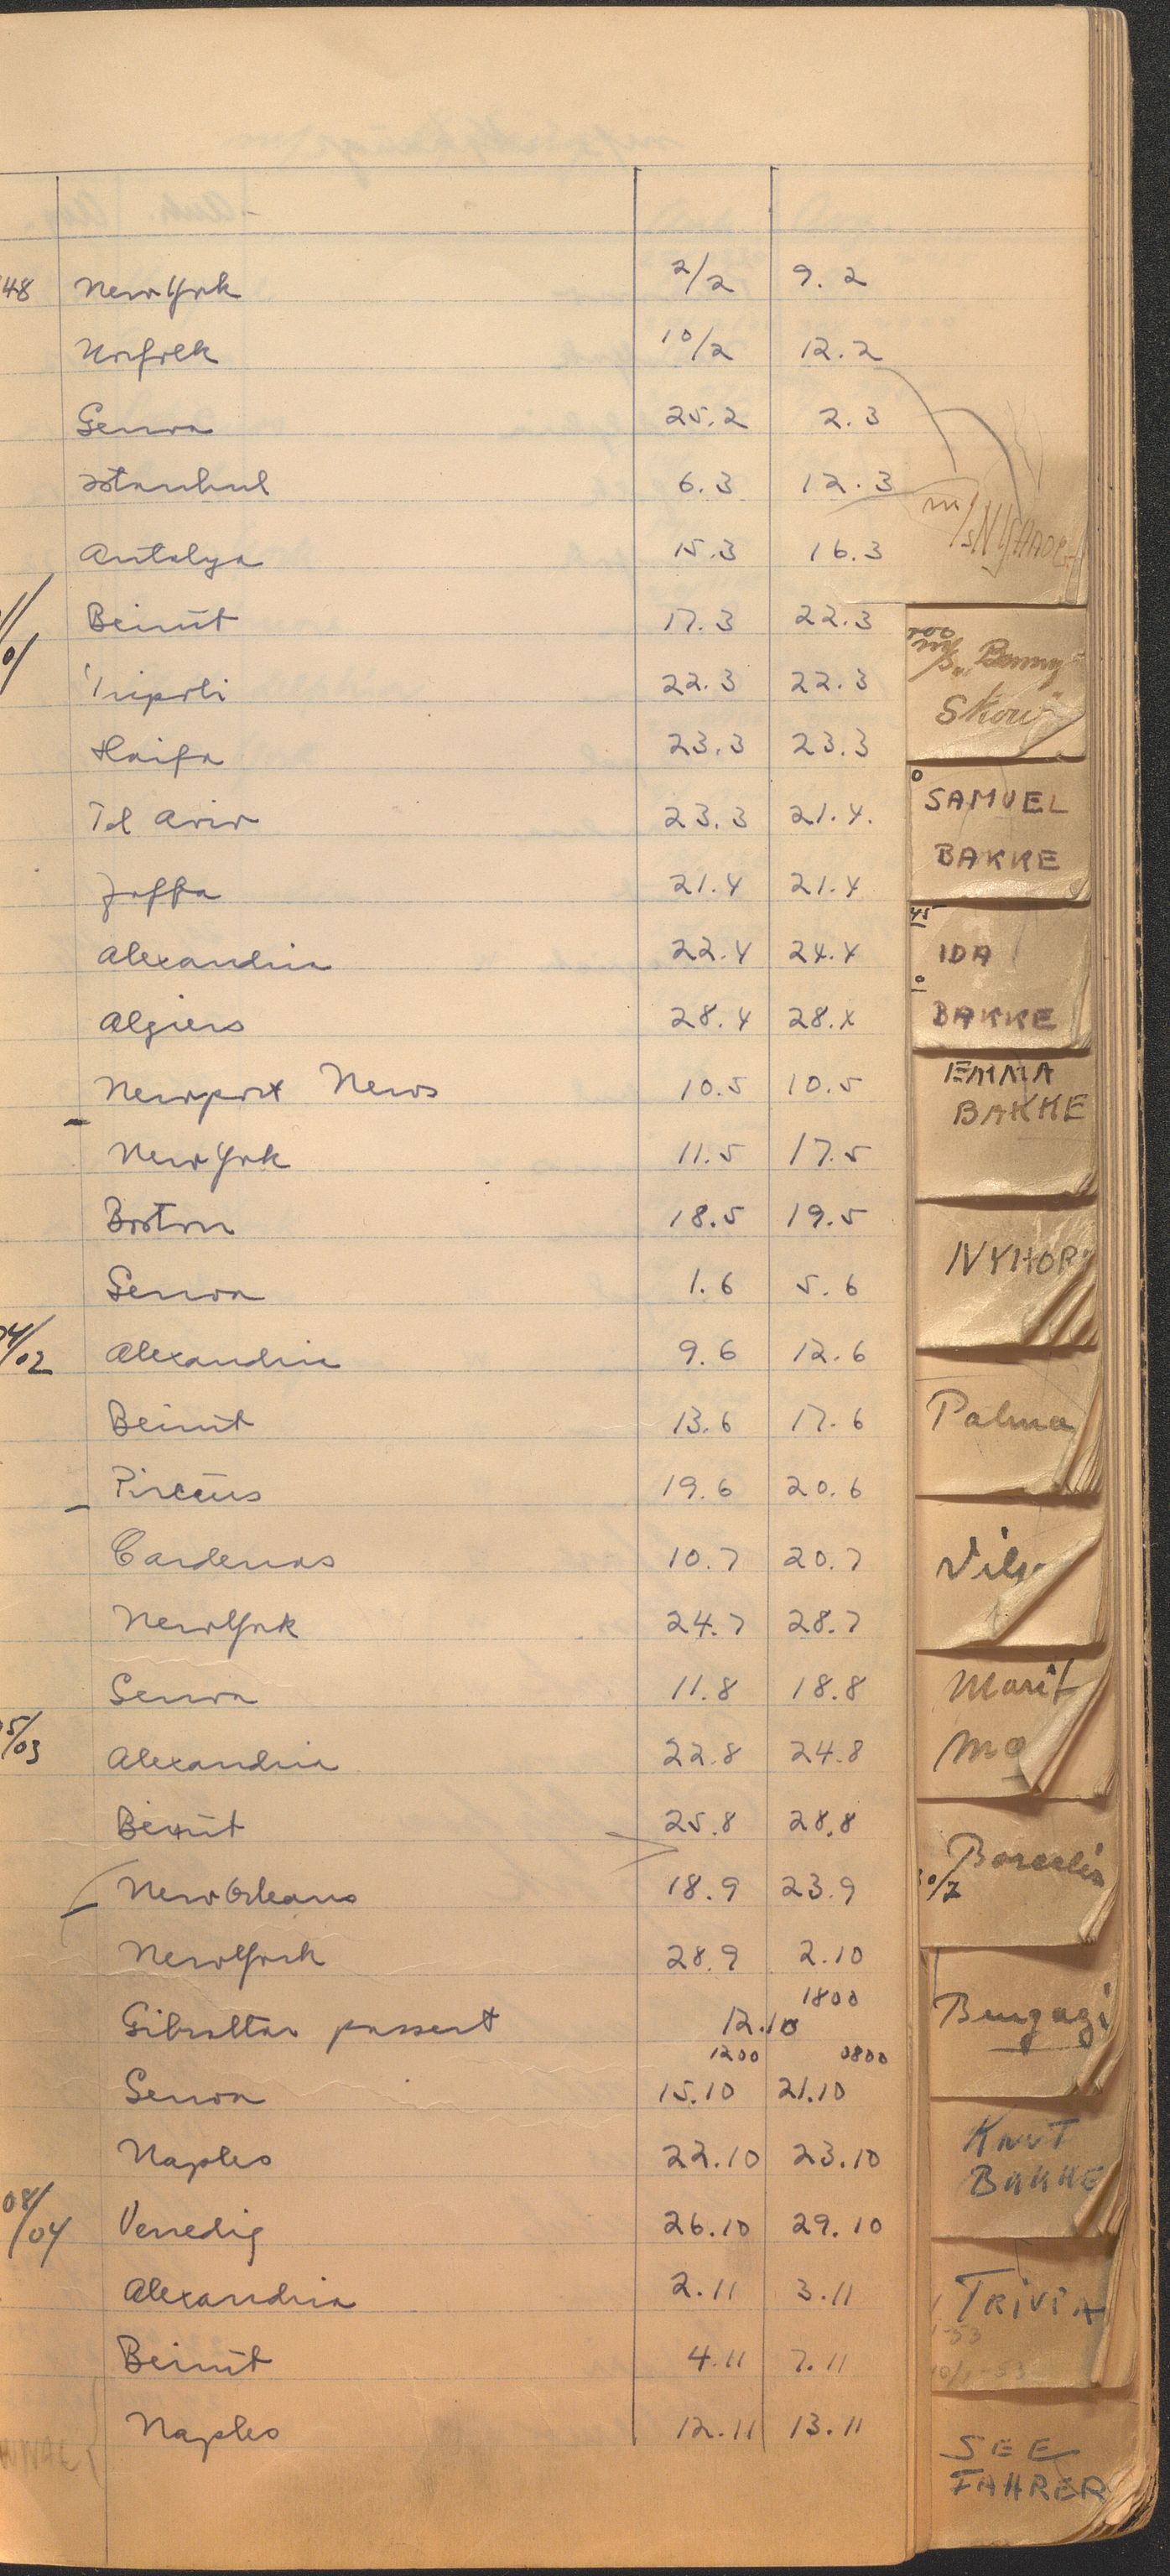 48 New York 2/2 9. 2
Norfolk 10/2 12.2
Genoa 25.2 2.3
Istanbul 6.3 12.3
Antalya 15.3 16.3
Beirut 17.3 22.3
Tripoli 22.3 22.3
Haifa 23.3 23.3
Tel Aviv 23.3 21.4.
Jaffa 21.4 21.4
Alexandria 22.4 24.4
Algiers 28.4 28.4
Newport News 10.5 10.5
New York 11.5 17.5
Boston 18.5 19.5
Genoa 1.6 5.6
04/02 Alexandria 9.6 12.6
Beirut 13.6 17.6
Piräus 19.6 20.6
Cardenas 10.7 20.7
New York 24.7 28.7
Genoa 11.8 18.8
05/03 Alexandria 22.8 24.8
Beirut 25.8 28.8
New Orleans 18.9 23.9
New York 28.9 2.10
1800
Gibraltar passert 12.10
1200 0800
Genoa 15.10 21.10
Naples 22.10 23.10
08/04 Venedig 26.10 29.10
Alexandria 2.11 3.11
Beirut 4.11 7.11
Naples 12.11 13.11
m/s
m/s "Benny
Skou"
SAMUEL
BAKKE
IDA
BAKKE
EMMA
BAKKE
NYHOR
Palma
Marit
SEE
FAHRER
KNUT
BAKKE
TRIVIA